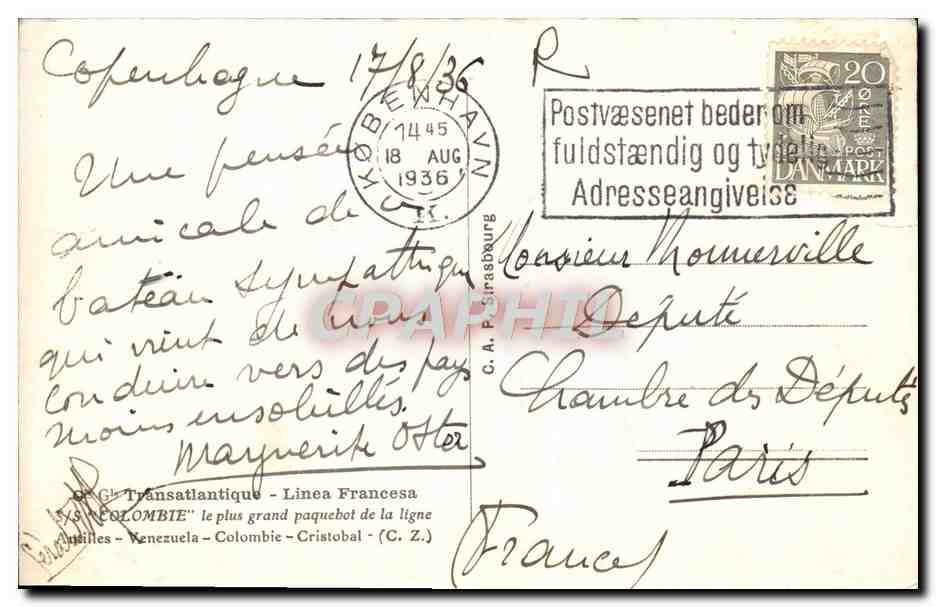 Copenhague 17/8/36
Une pensée
amicale de ce
bateau sympathique
qui vient de nous
conduire vers des pays
moins ensoleillés.
Marguerite Oster
Gle Transatlantique - Linea Francesa
S/S "COLOMBIE" le plus grand paquebot de la ligne
Antilles - Venezuela - Colombie - Cristobal - (C. Z.)
C. A. P. Strasbourg
KØBENHAVN
1445
18 AUG
1936
K.
R
Postvæsenet beder om
fuldstændig og tydelig
Adresseangivelse
20
ØRE
POST
DANMARK
Monsieur Monnerville
Député
Chambre des Députés
Paris
(France)
CPAPHIL